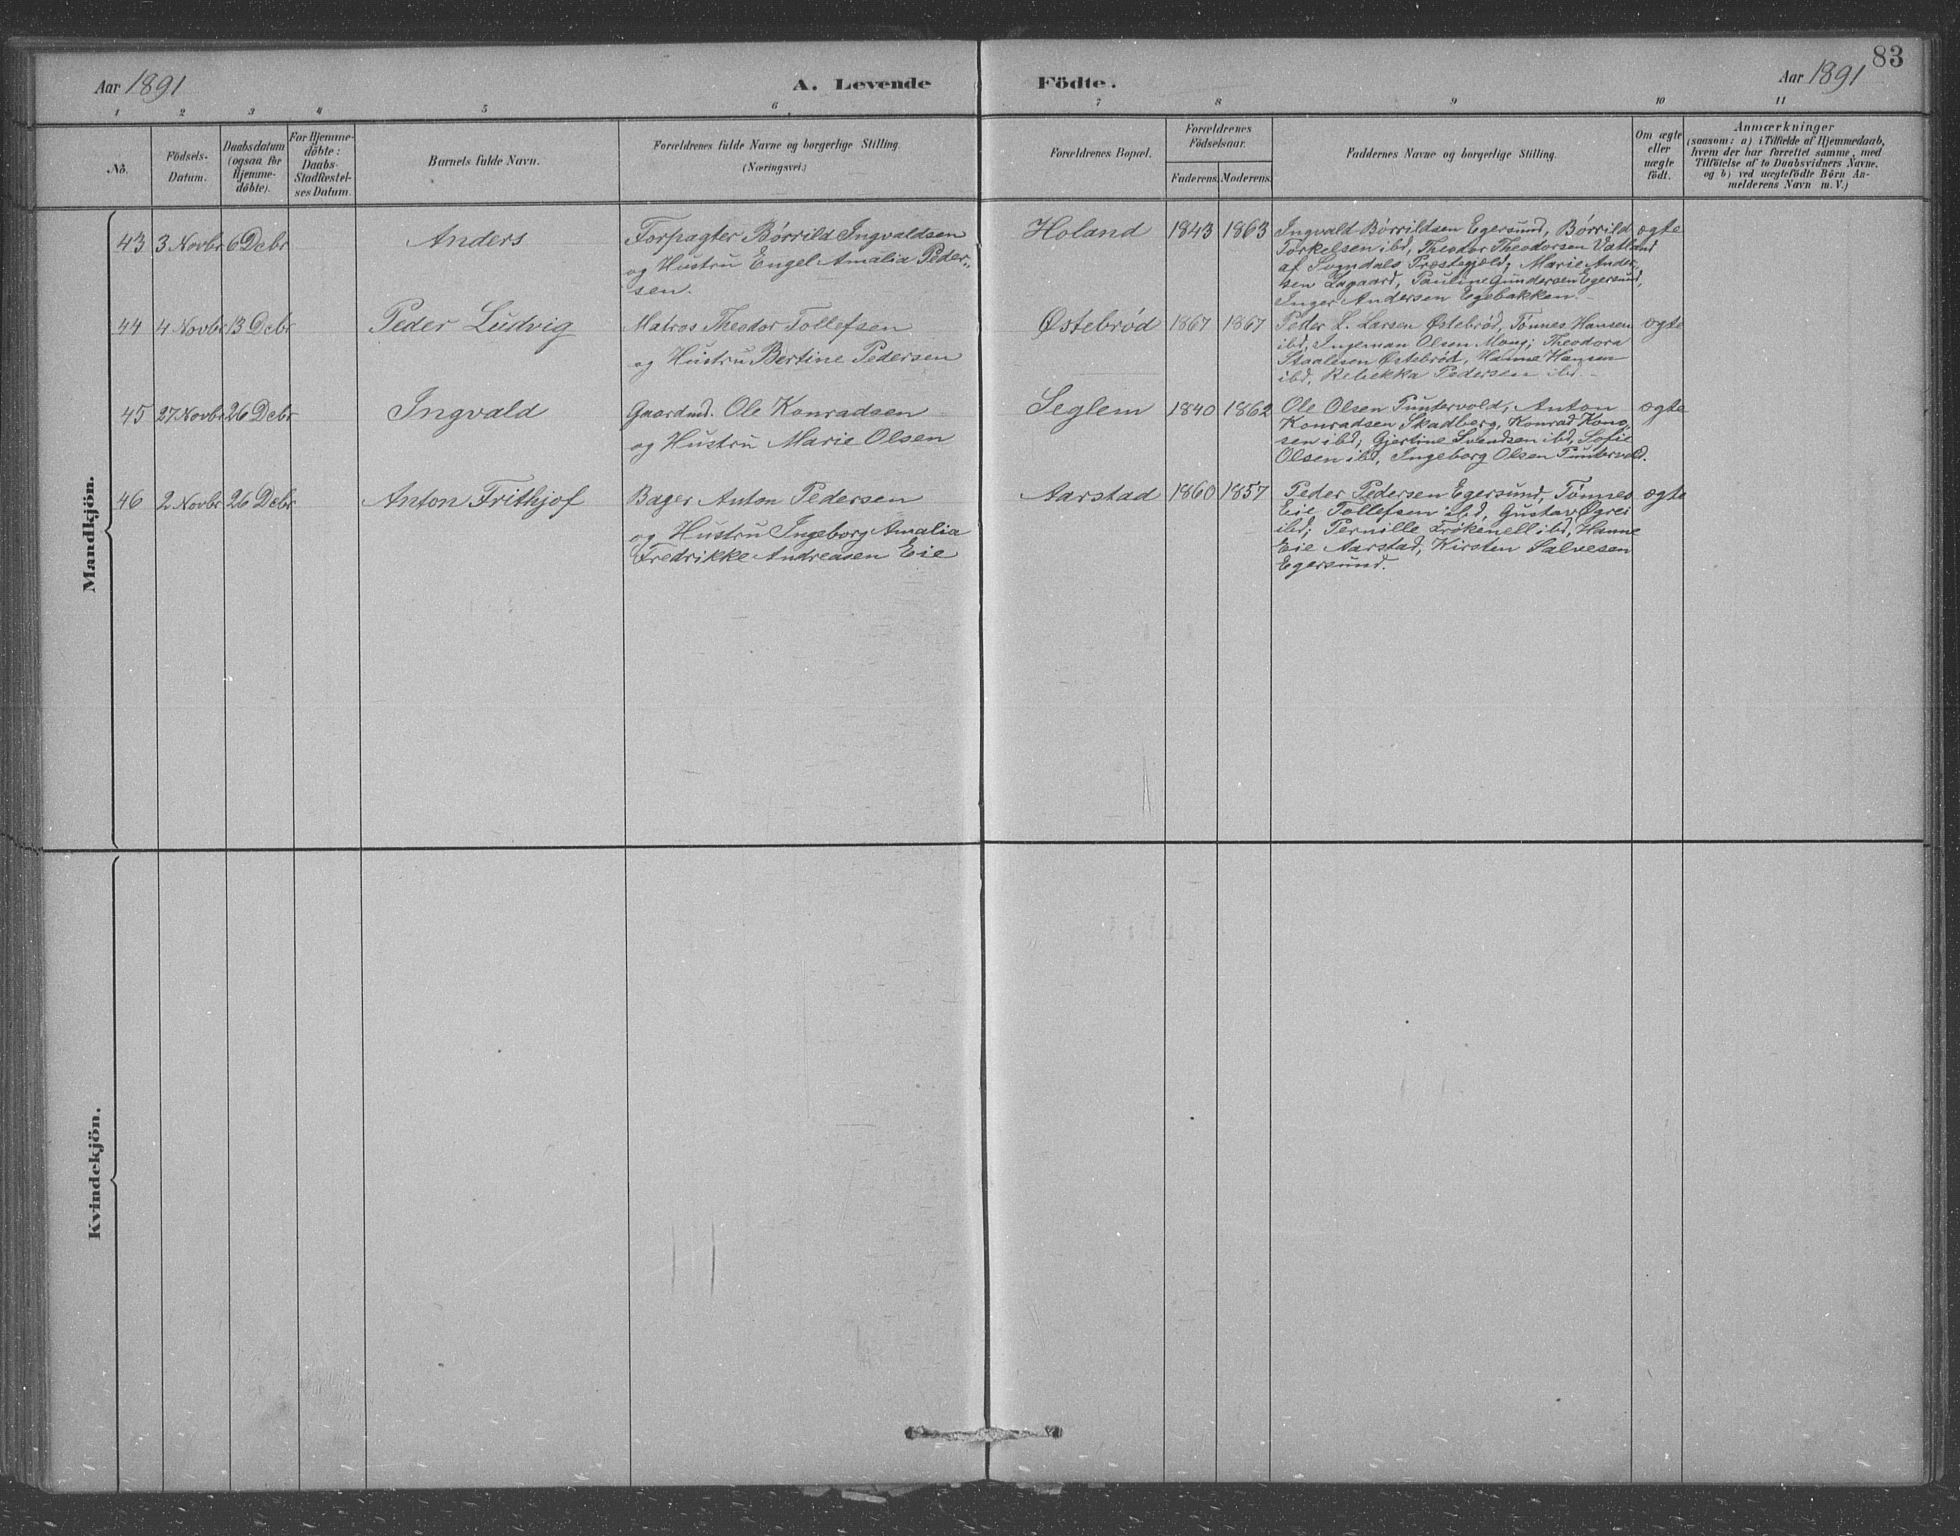 83
Aar 1891
A. Levende
Födte.
Aar 1891
1 2 3 4 5 6 7 8 9 10 11
No.
Födsels-
Datum.
Daabsdatum
(ogsaa for
Hjemme-
döbte).
For Hjemme-
döbte:
Daabs-
Stadfæstel-
ses Datum.
Barnets fulde Navn.
Forældrenes fulde Navne og borgerlige Stilling.
(Næringsvei.)
Forældrenes Bopæl.
Forældrenes
Födselsaar.
Faderens. Moderens.
Faddernes Navne og borgerlige Stilling.
Om ægte
eller
uægte
födt.
Anmærkninger
(saasom: a) i Tilfælde af Hjemmedaab,
hvem der har forrettet samme, med
Tilföielse af to Daabsvidners Navne,
og b) ved uægtefödte Börn An-
melderens Navn m. V.)
Mandkjön.
43 3 Novbr 6 Debr
Anders
Forpagter Børrild Ingvaldsen
og Hustru Engel Amalia Peder-
sen.
Holand 1843 1863
Ingvald Børrildsen Egersund, Børrild
Torkelsen ibd, Theodor Theodorsen Vatland
af Sogndals Præstegjæld, Marie Ander-
sen Lagaard, Pauline Gundersen Egersund,
Inger Andersen Egebakken.
ægte
44 4 Novbr 13 Debr
Peder Ludvig
Matros Theodor Tollefsen
og Hustru Bertine Pedersen
Østebrød 1867 1867
Peder L. Larsen Østebrød, Tønnes Hansen
ibd, Ingeman Olsen Mong, Theodora
Staalesen Østebrød, Hanne Hansen
ibd, Rebekka Pedersen ibd.
ægte
45 27 Novbr 26 Debr
Ingvald
Gaardmd. Ole Konradsen
og Hustru Marie Olsen
Seglem 1840 1862
Ole Olsen Puntervold, Anton
Konradsen Skadberg, Konrad
sen ibd, Gjertine Svendsen ibd, Sofie
Olsen ibd, Ingeborg Olsen Puntervold.
ægte
46 2 Novbr 26 Debr
Anton Frithjof
Bager Anton Pedersen
og Hustru Ingeborg Amalia
Fredrikke Andreasen Eie
Aarstad 1860 1857
Peder Pedersen Egersund, Tønnes
Eie Tollefsen ibd, Gustav Øgrei
ibd; Pernille ibd, Hanne
Eie Aarstad, Kirsten Salvesen
Egersund.
ægte
Kvindekjön.